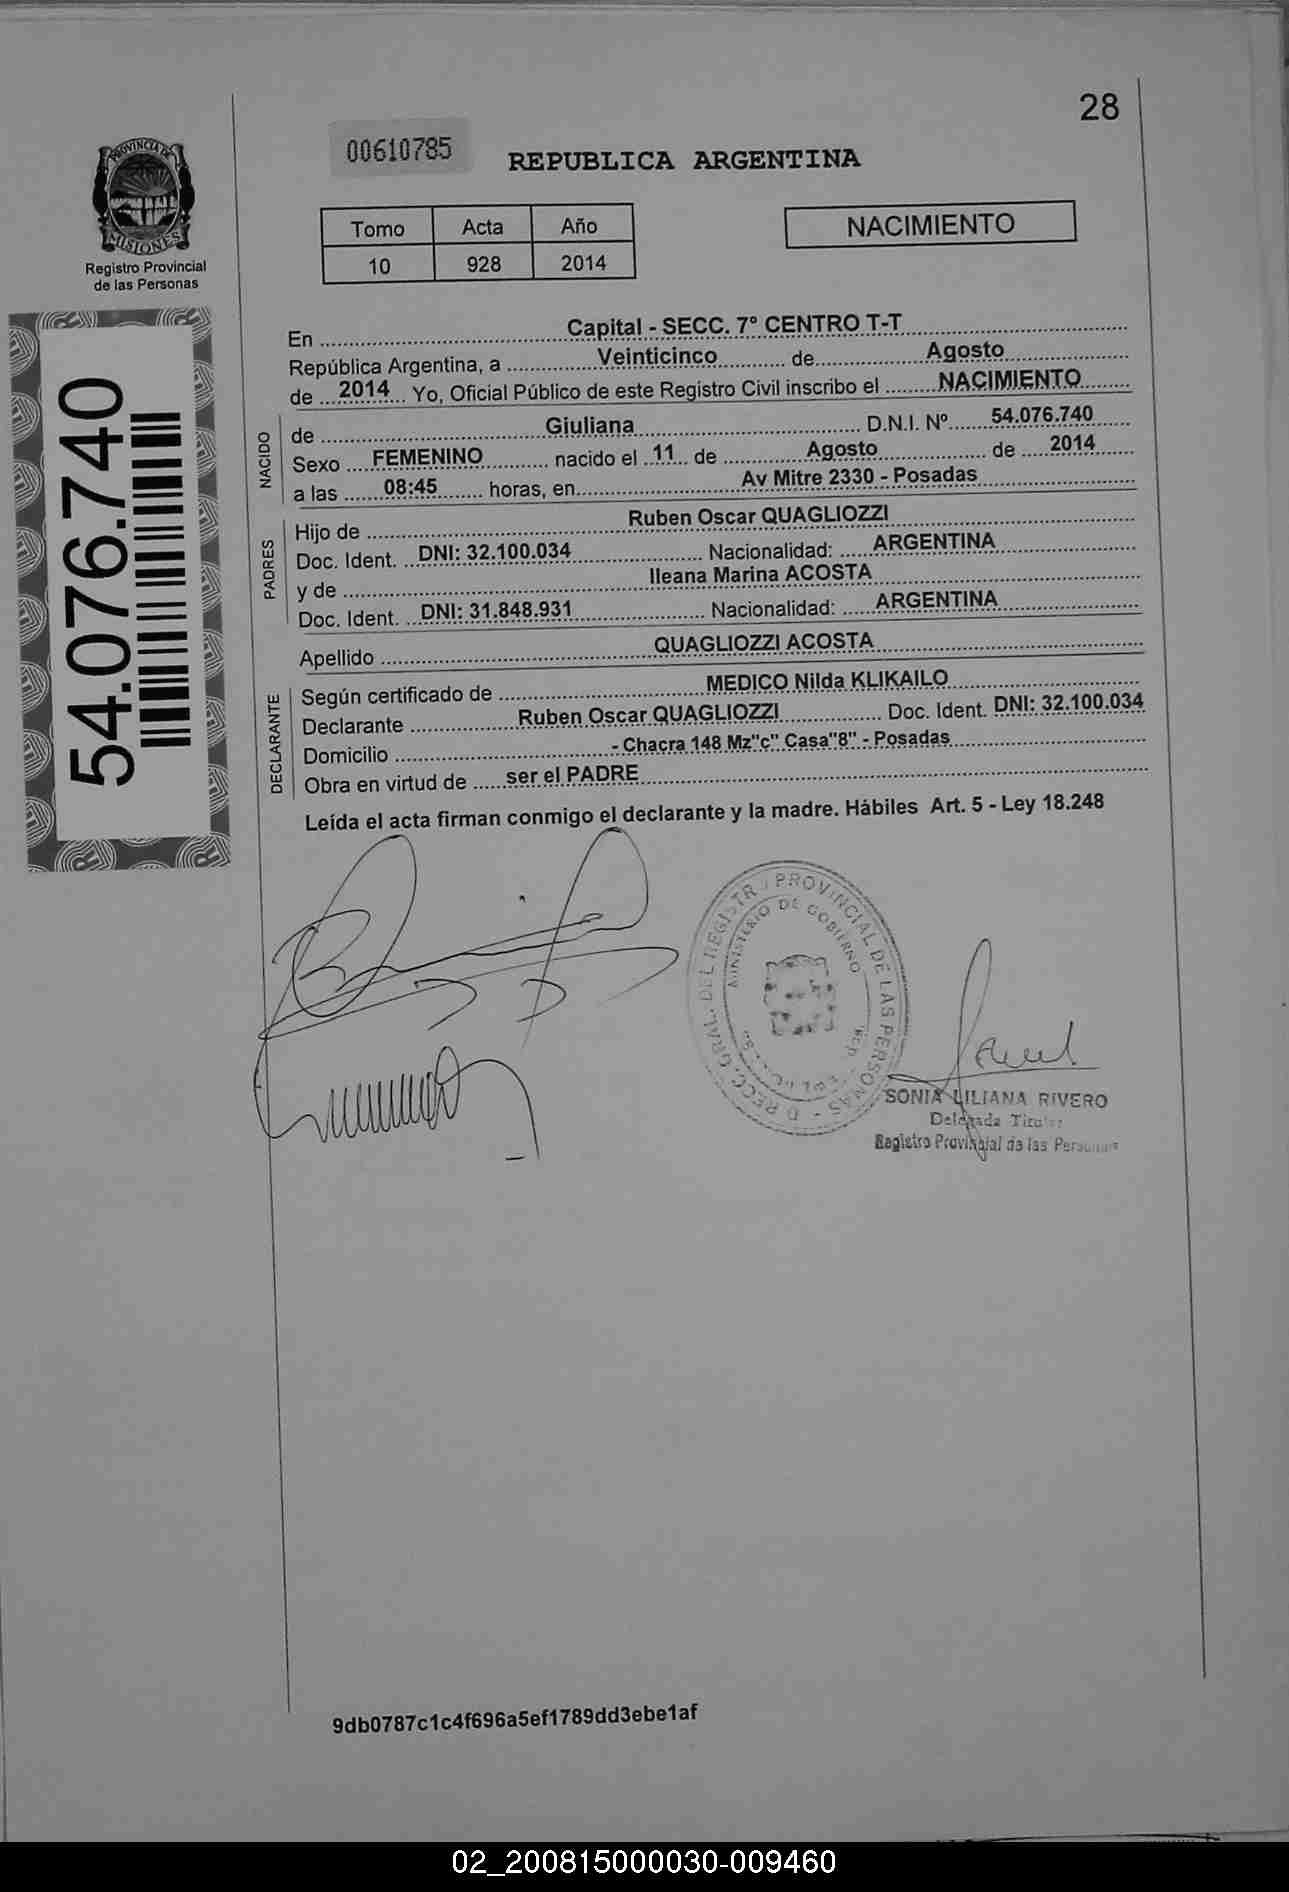 28
PROVINCIA DE
MISIONES
Registro Provincial
de las Personas
00610785
REPUBLICA ARGENTINA
Tomo Acta Año
10 928 2014
NACIMIENTO
54.076.740
En Capital - SECC. 7° CENTRO T-T
República Argentina, a Veinticinco de Agosto
de 2014 Yo, Oficial Público de este Registro Civil inscribo el NACIMIENTO
NACIDO
de Giuliana D.N.I. Nº 54.076.740
Sexo FEMENINO nacido el 11 de Agosto de 2014
a las 08:45 horas, en Av Mitre 2330 - Posadas
PADRES
Hijo de Ruben Oscar QUAGLIOZZI
Doc. Ident. DNI: 32.100.034 Nacionalidad: ARGENTINA
y de Ileana Marina ACOSTA
Doc. Ident. DNI: 31.848.931 Nacionalidad: ARGENTINA
Apellido QUAGLIOZZI ACOSTA
DECLARANTE
Según certificado de MEDICO Nilda KLIKAILO
Declarante Ruben Oscar QUAGLIOZZI Doc. Ident. DNI: 32.100.034
Domicilio - Chacra 148 Mz"c" Casa"8" - Posadas
Obra en virtud de ser el PADRE
Leída el acta firman conmigo el declarante y la madre. Hábiles Art. 5 - Ley 18.248
PROVINCIAL DE LAS PERSONAS
MINISTERIO DE GOBIERNO
SONIA LILIANA RIVERO
Delegada Titular
Registro Provincial de las Personas
9db0787c1c4f696a5ef1789dd3ebe1af
02_200815000030-009460